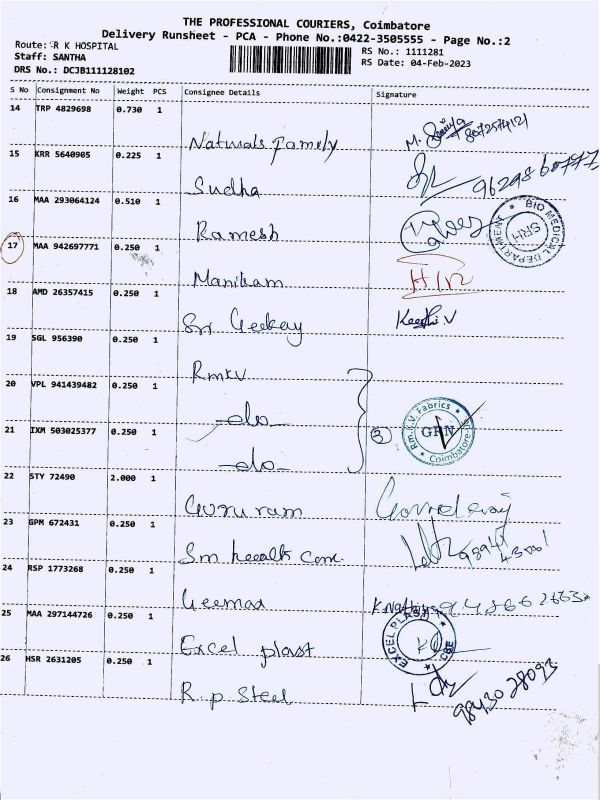 THE PROFESSIONAL COURIERS, Coimbatore
Delivery Runsheet - PCA - Phone No.:0422-3505555 - Page No.:2
Route: R K HOSPITAL
RS No.: 1111281
Staff: SANTHA
RS Date: 04-Feb-2023
DRS No.: DCJB111128102
S No Consignment No Weight PCS Consignee Details Signature
14 TRP 4829698 0.730 1
Naturals family
15 KRR 5640905 0.225 1
Sudha
16 MAA 293064124 0.510 1
Ramesh
BIO MEDICAL DEPARTMENT
SRH
17 MAA 942697771 0.250 1
Manikam
18 AMD 26357415 0.250 1
Sri Geekay
Keerthi.V
19 SGL 956390 0.250 1
Rmkv
20 VPL 941439482 0.250 1
-do-
21 IXM 503025377 0.250 1
-do-
3
Rm.K.V. Fabrics
GRN
Coimbatore
22 STY 72490 2.000 1
Guru ram
23 GPM 672431 0.250 1
Sm health care.
24 RSP 1773268 0.250 1
Geemax
25 MAA 297144726 0.250 1
Excel plast
EXCEL PLAST
CBE
26 HSR 2631205 0.250 1
R. p Steel
98430 28093